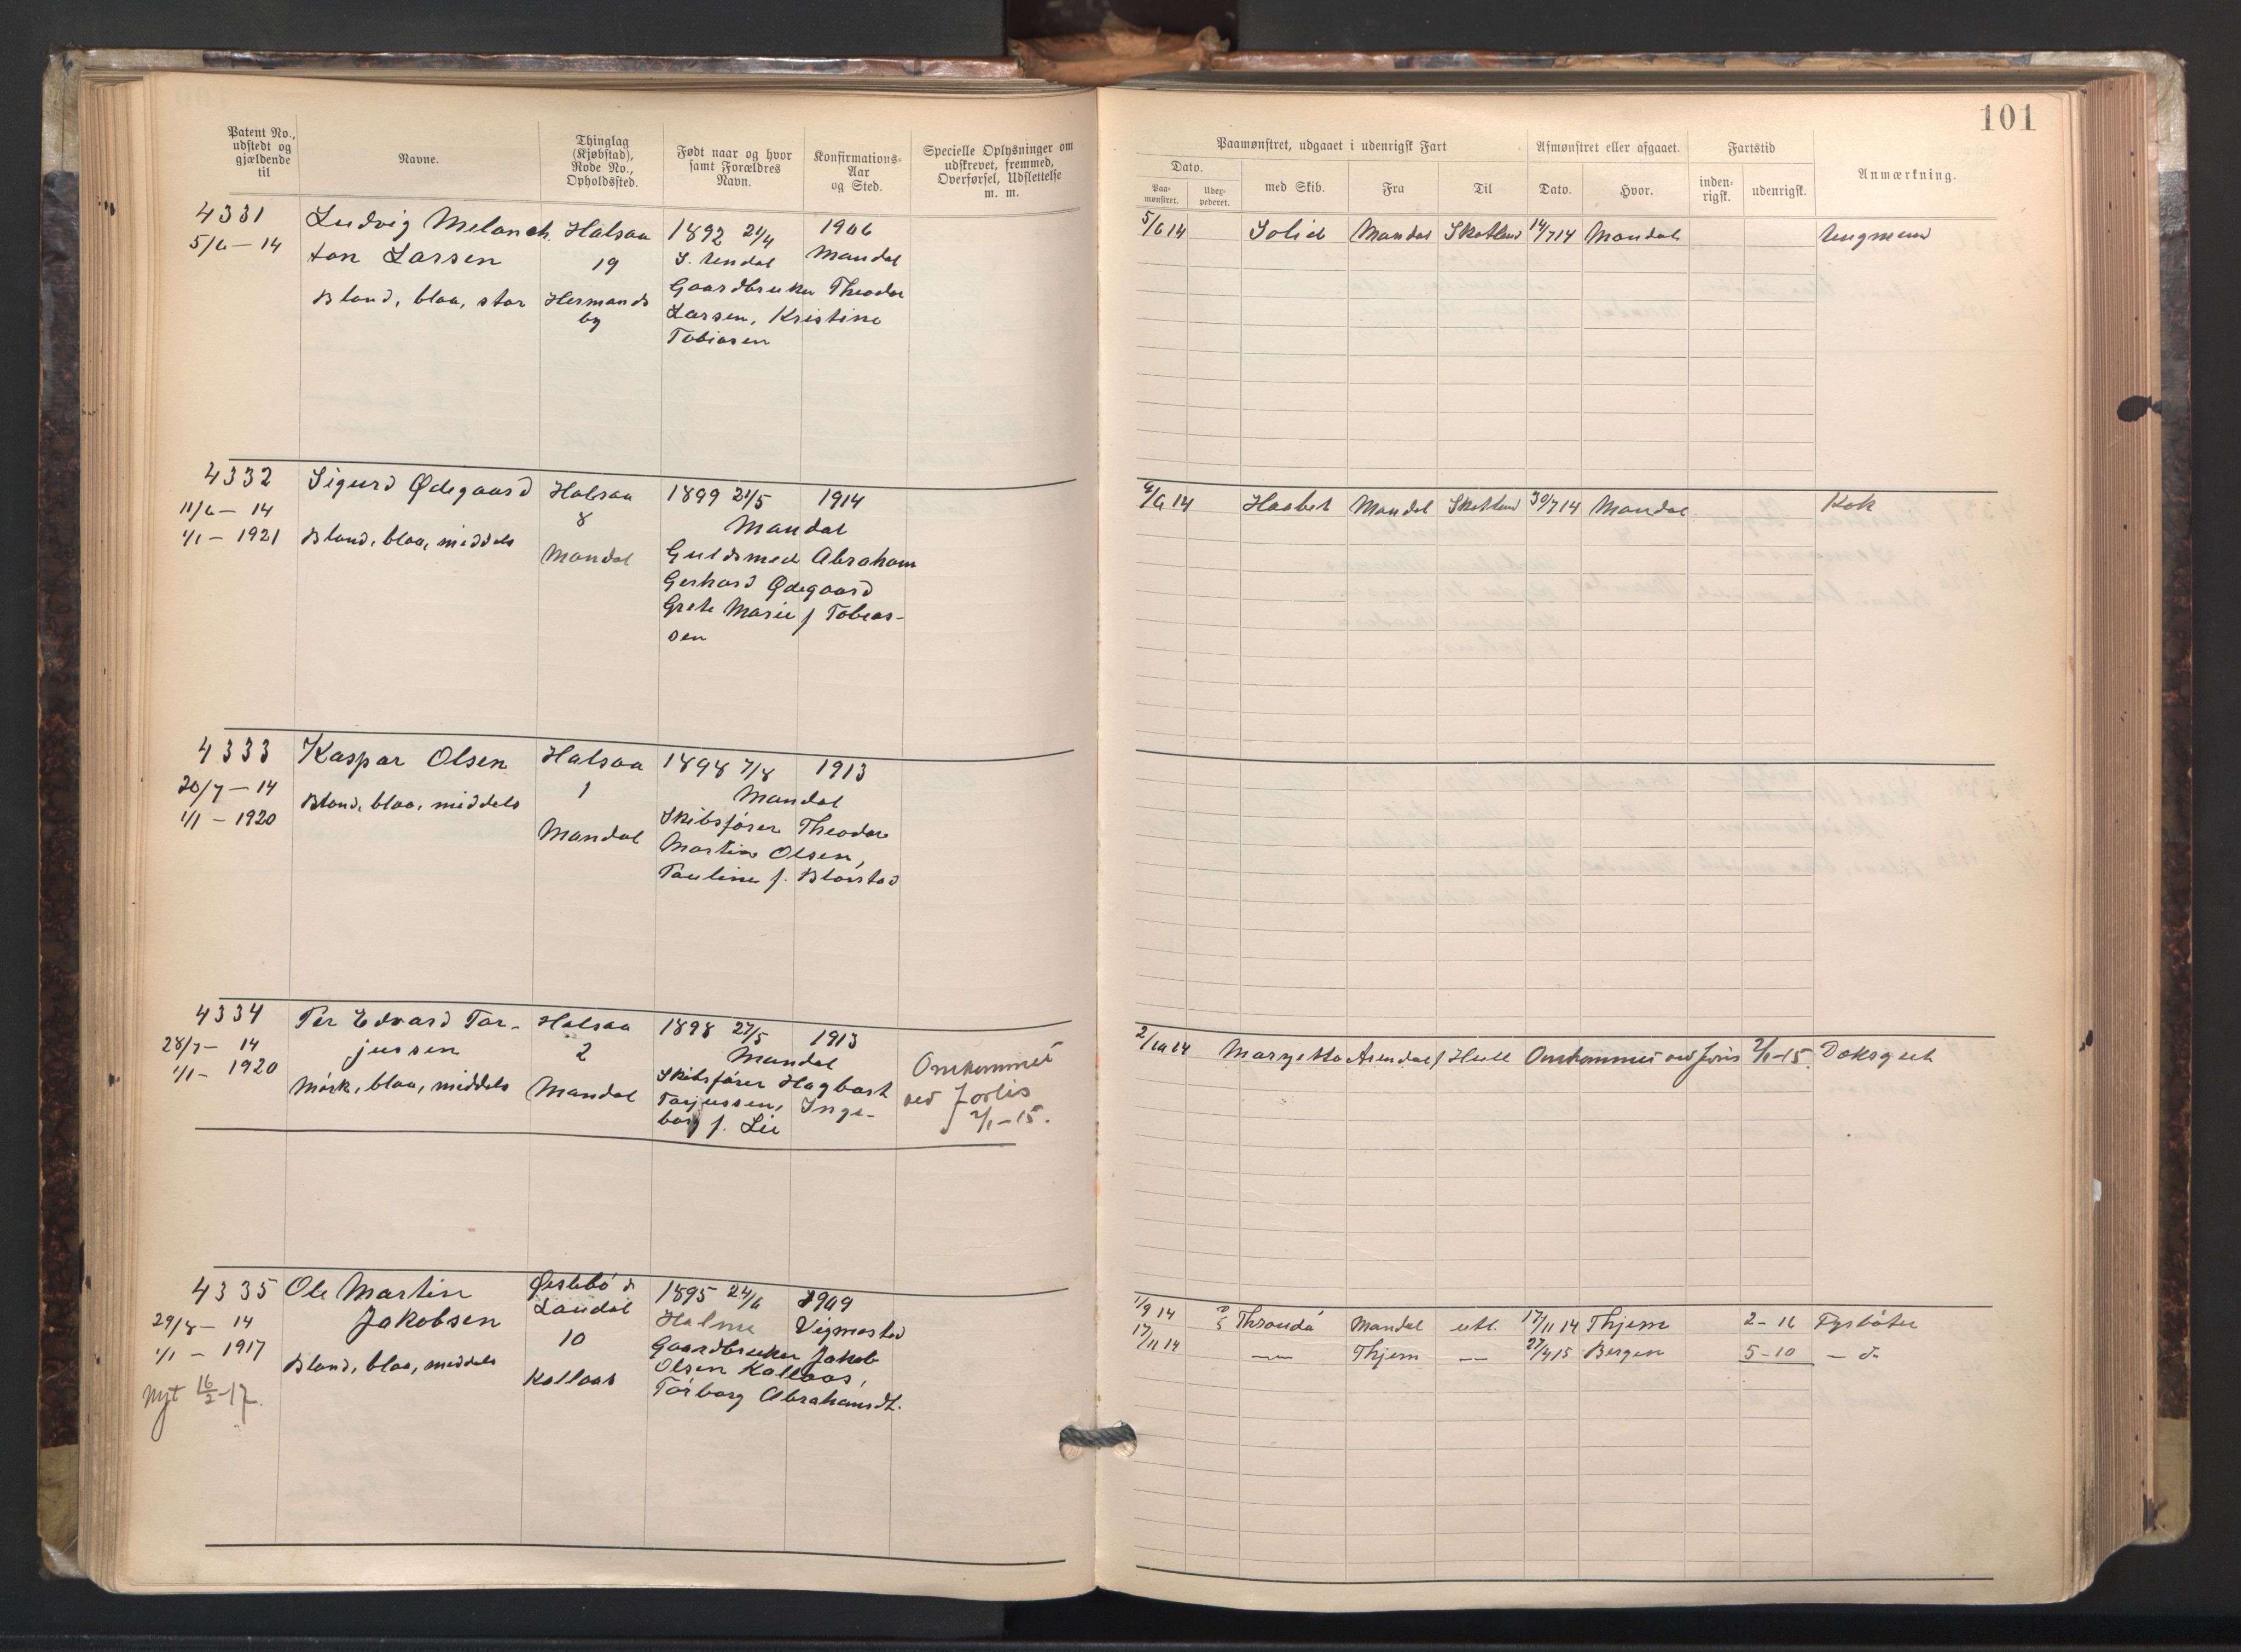 101
Patent No., udstedt og gjældende til
Navne.
Thinglag (Kjøbstad), Rode No., Opholdssted.
Født naar og hvor samt Forældres Navn.
Konfirmations-Aar og Sted.
Specielle Oplysninger om udskrevet, fremmed, Overførsel, Udslettelse m. m.
Paamønstret, udgaaet i udenrigsk Fart
Afmønstret eller afgaaet.
Fartstid
Anmærkning.
Dato.
Paa-mønstret.
Uder-pederet.
med Skib.
Fra
Til
Dato.
Hvor.
inden-rigsk.
udenrigsk.
4331 Ludvig Melanch. Halsaa 1892 21/4 1906
5/6 – 14 ton Larsen 19 S. Undal Mandal
Blond, blaa, stor Hermands Gaardbruker Theodor
by Larsen, Kristine
Tobiasen
5/6 14 Solid Mandal Skotland 14/7 14 Mandal Ungmand
4332 Sigurd Ødegaard Halsaa 1899 21/5 1914
11/6 – 14 8 Mandal
1/1 – 1921 Blond, blaa, middels Mandal Guldsmed Abraham
Gerhard Ødegaard
Grete Marie f Tobias-
sen
6 14 Haabet Mandal Skotland 30/7 14 Mandal Kok
4333 Kaspar Olsen Halsaa 1898 7/8 1913
20/7 – 14 1 Mandal
1/1 – 1920 Blond, blaa, middels Mandal Skibsfører Theodor
Martin Olsen,
Pauline f. Blørstad
4334 Per Edvard Tar- Halsaa 1898 27/5 1913
28/7 – 14 jussen 2 Mandal
1/1 – 1920 Mørk, blaa, middels Mandal Skibsfører Hagbart
Tarjussen, Inge-
borg f. Lie
Omkommet
ved forlis
2/1 – 15.
2/10 14 Margetta Arendal Hull Omkommet ved forlis 2/1–15. Doksgut
4335 Ole Martin Øislebø & 1895 24/6 1909
29/8 – 14 Jakobsen Laudal Holme Vigmostad
1/1 – 1917 10 Gaardbruker Jakob
Blond, blaa, middels Kollaas Olsen Kollaas,
Nyt 16/2–17. Torborg Abrahamsdt.
1/9 14 D/S Throndä Mandal utl. 17/11 14 Thjem 2–16 Fyrbøter
17/11 14 — Thjem — 27/4 15 Bergen 5–10 – do